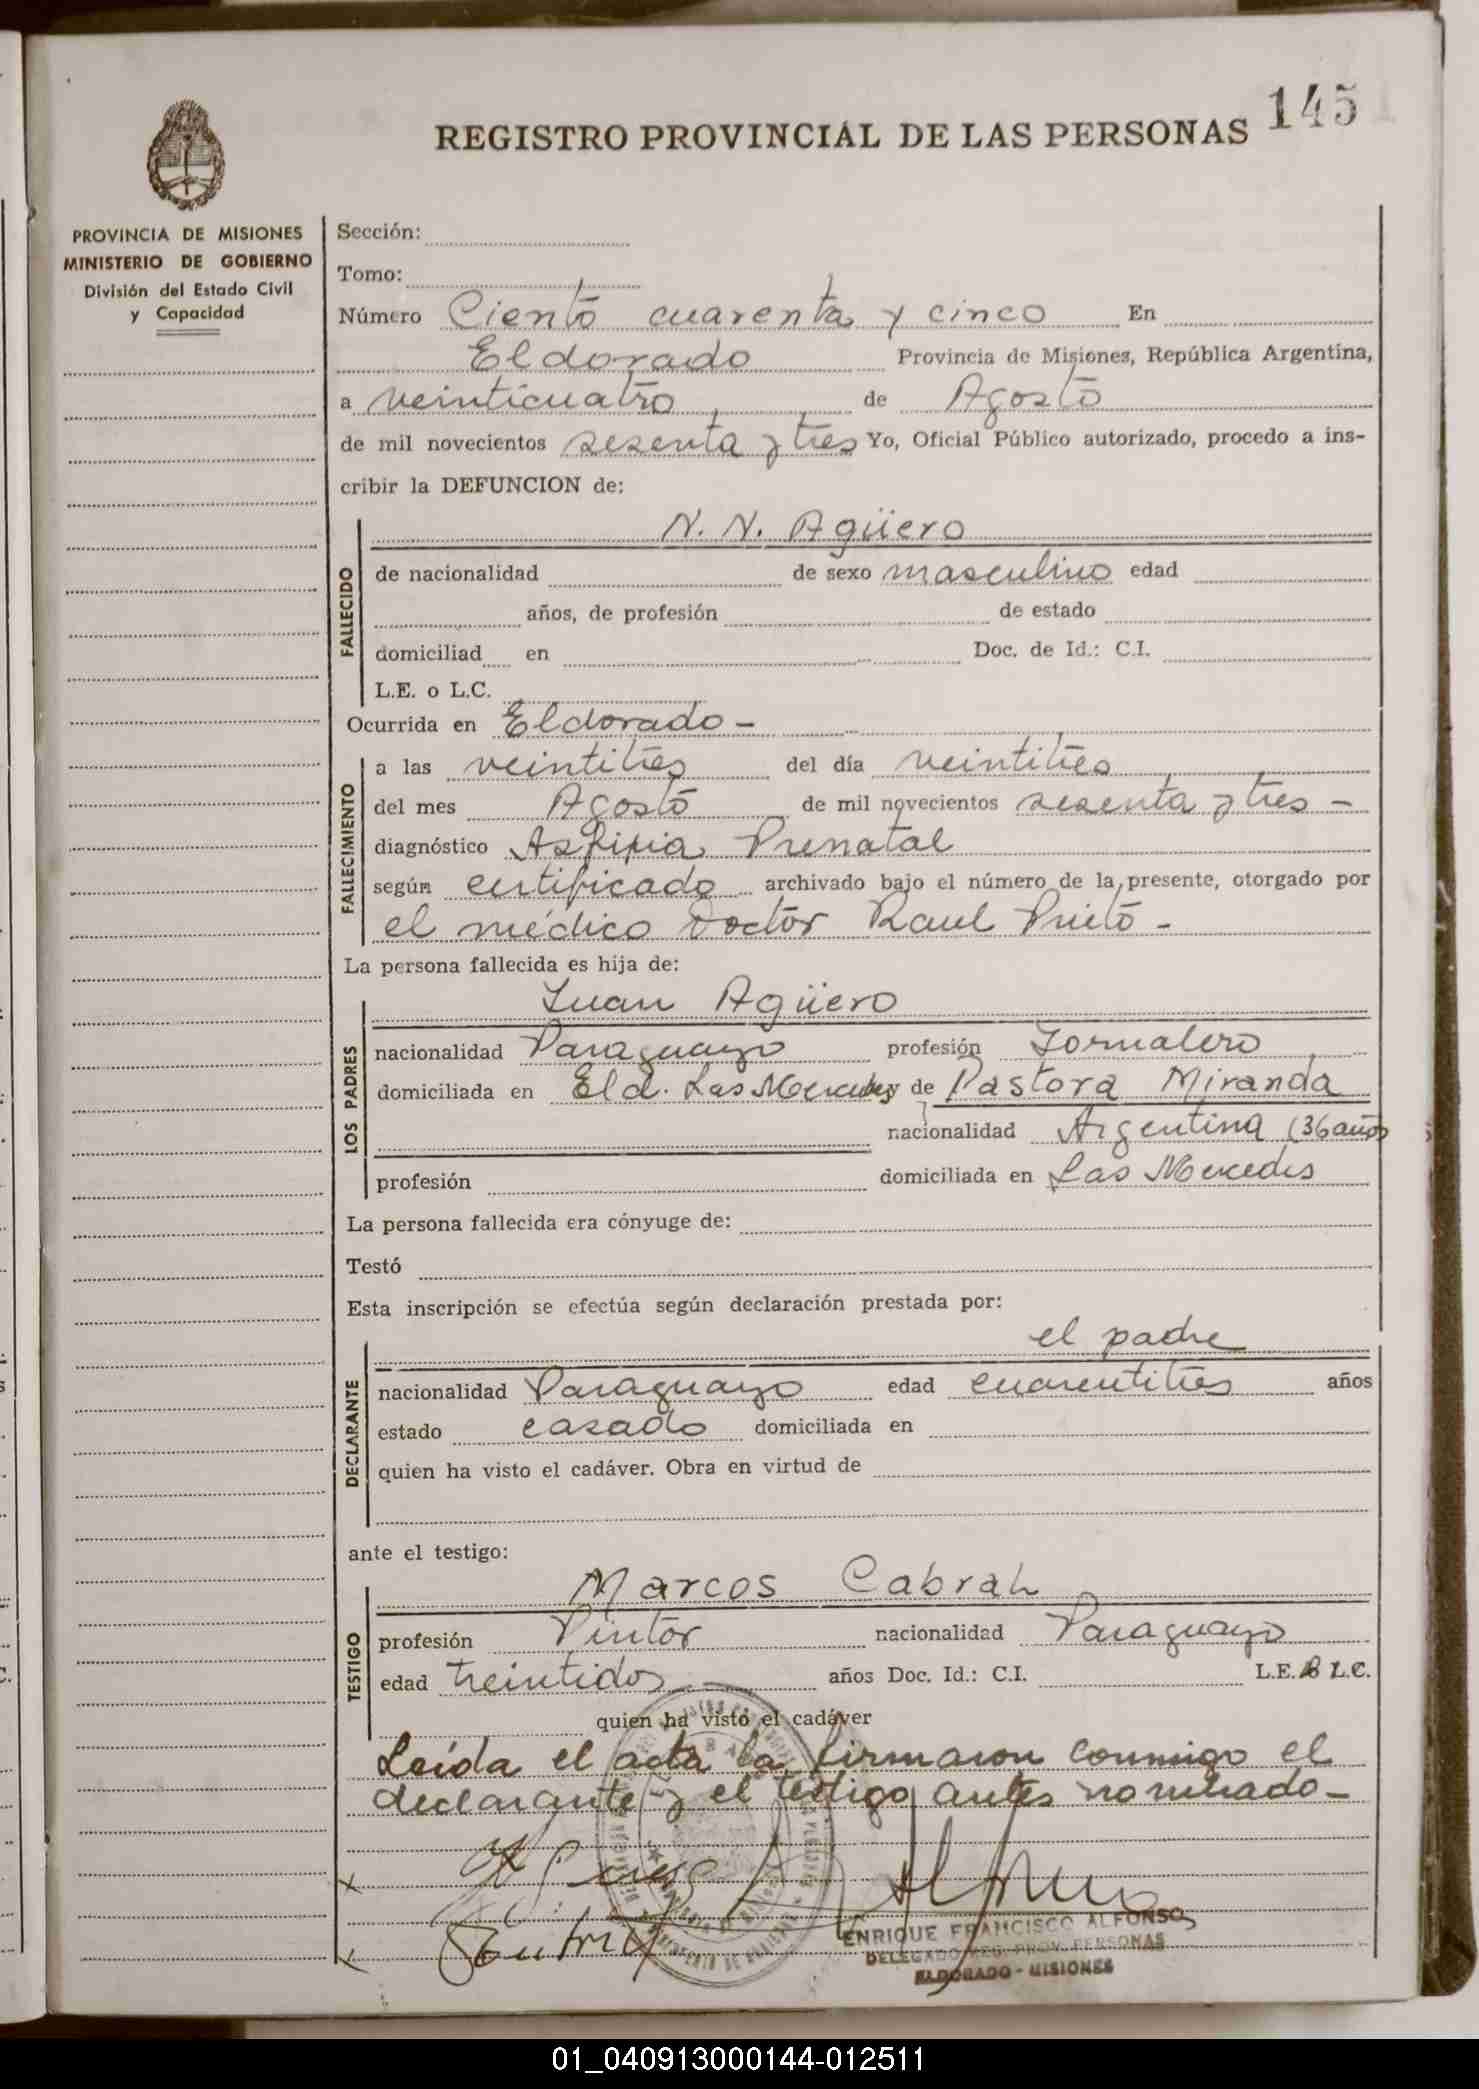 145
REGISTRO PROVINCIAL DE LAS PERSONAS
PROVINCIA DE MISIONES
MINISTERIO DE GOBIERNO
División del Estado Civil
y Capacidad
Sección:
Tomo:
Número Ciento cuarenta y cinco En
Eldorado Provincia de Misiones, República Argentina,
a veinticuatro de Agosto
de mil novecientos sesenta y tres Yo, Oficial Público autorizado, procedo a ins-
cribir la DEFUNCION de:
N. N. Agüero
FALLECIDO
de nacionalidad de sexo masculino edad
años, de profesión de estado
domiciliad en Doc. de Id.: C.I.
L.E. o L.C.
Ocurrida en Eldorado -
FALLECIMIENTO
a las veintitres del día veintitres
del mes Agosto de mil novecientos sesenta y tres -
diagnóstico Asfixia Prenatal
según certificado archivado bajo el número de la presente, otorgado por
el médico Doctor Raul Prieto -
La persona fallecida es hija de:
LOS PADRES
Juan Agüero
nacionalidad Paraguayo profesión Jornalero
domiciliada en Eld. Las Mercedes y de Pastora Miranda
nacionalidad Argentina (36 años
profesión domiciliada en Las Mercedes
La persona fallecida era cónyuge de:
Testó
Esta inscripción se efectúa según declaración prestada por:
DECLARANTE
el padre
nacionalidad Paraguayo edad cuarentitres años
estado casado domiciliada en
quien ha visto el cadáver. Obra en virtud de
ante el testigo:
TESTIGO
Marcos Cabral
profesión Pintor nacionalidad Paraguayo
edad treintidos años Doc. Id.: C.I. L.E. L.C.
quien ha visto el cadáver
Leída el acta la firmaron conmigo el
declarante y el testigo antes nombrado -
ENRIQUE FRANCISCO ALFONSO
DELEGADO REG. PROV. PERSONAS
ELDORADO - MISIONES
01_040913000144-012511